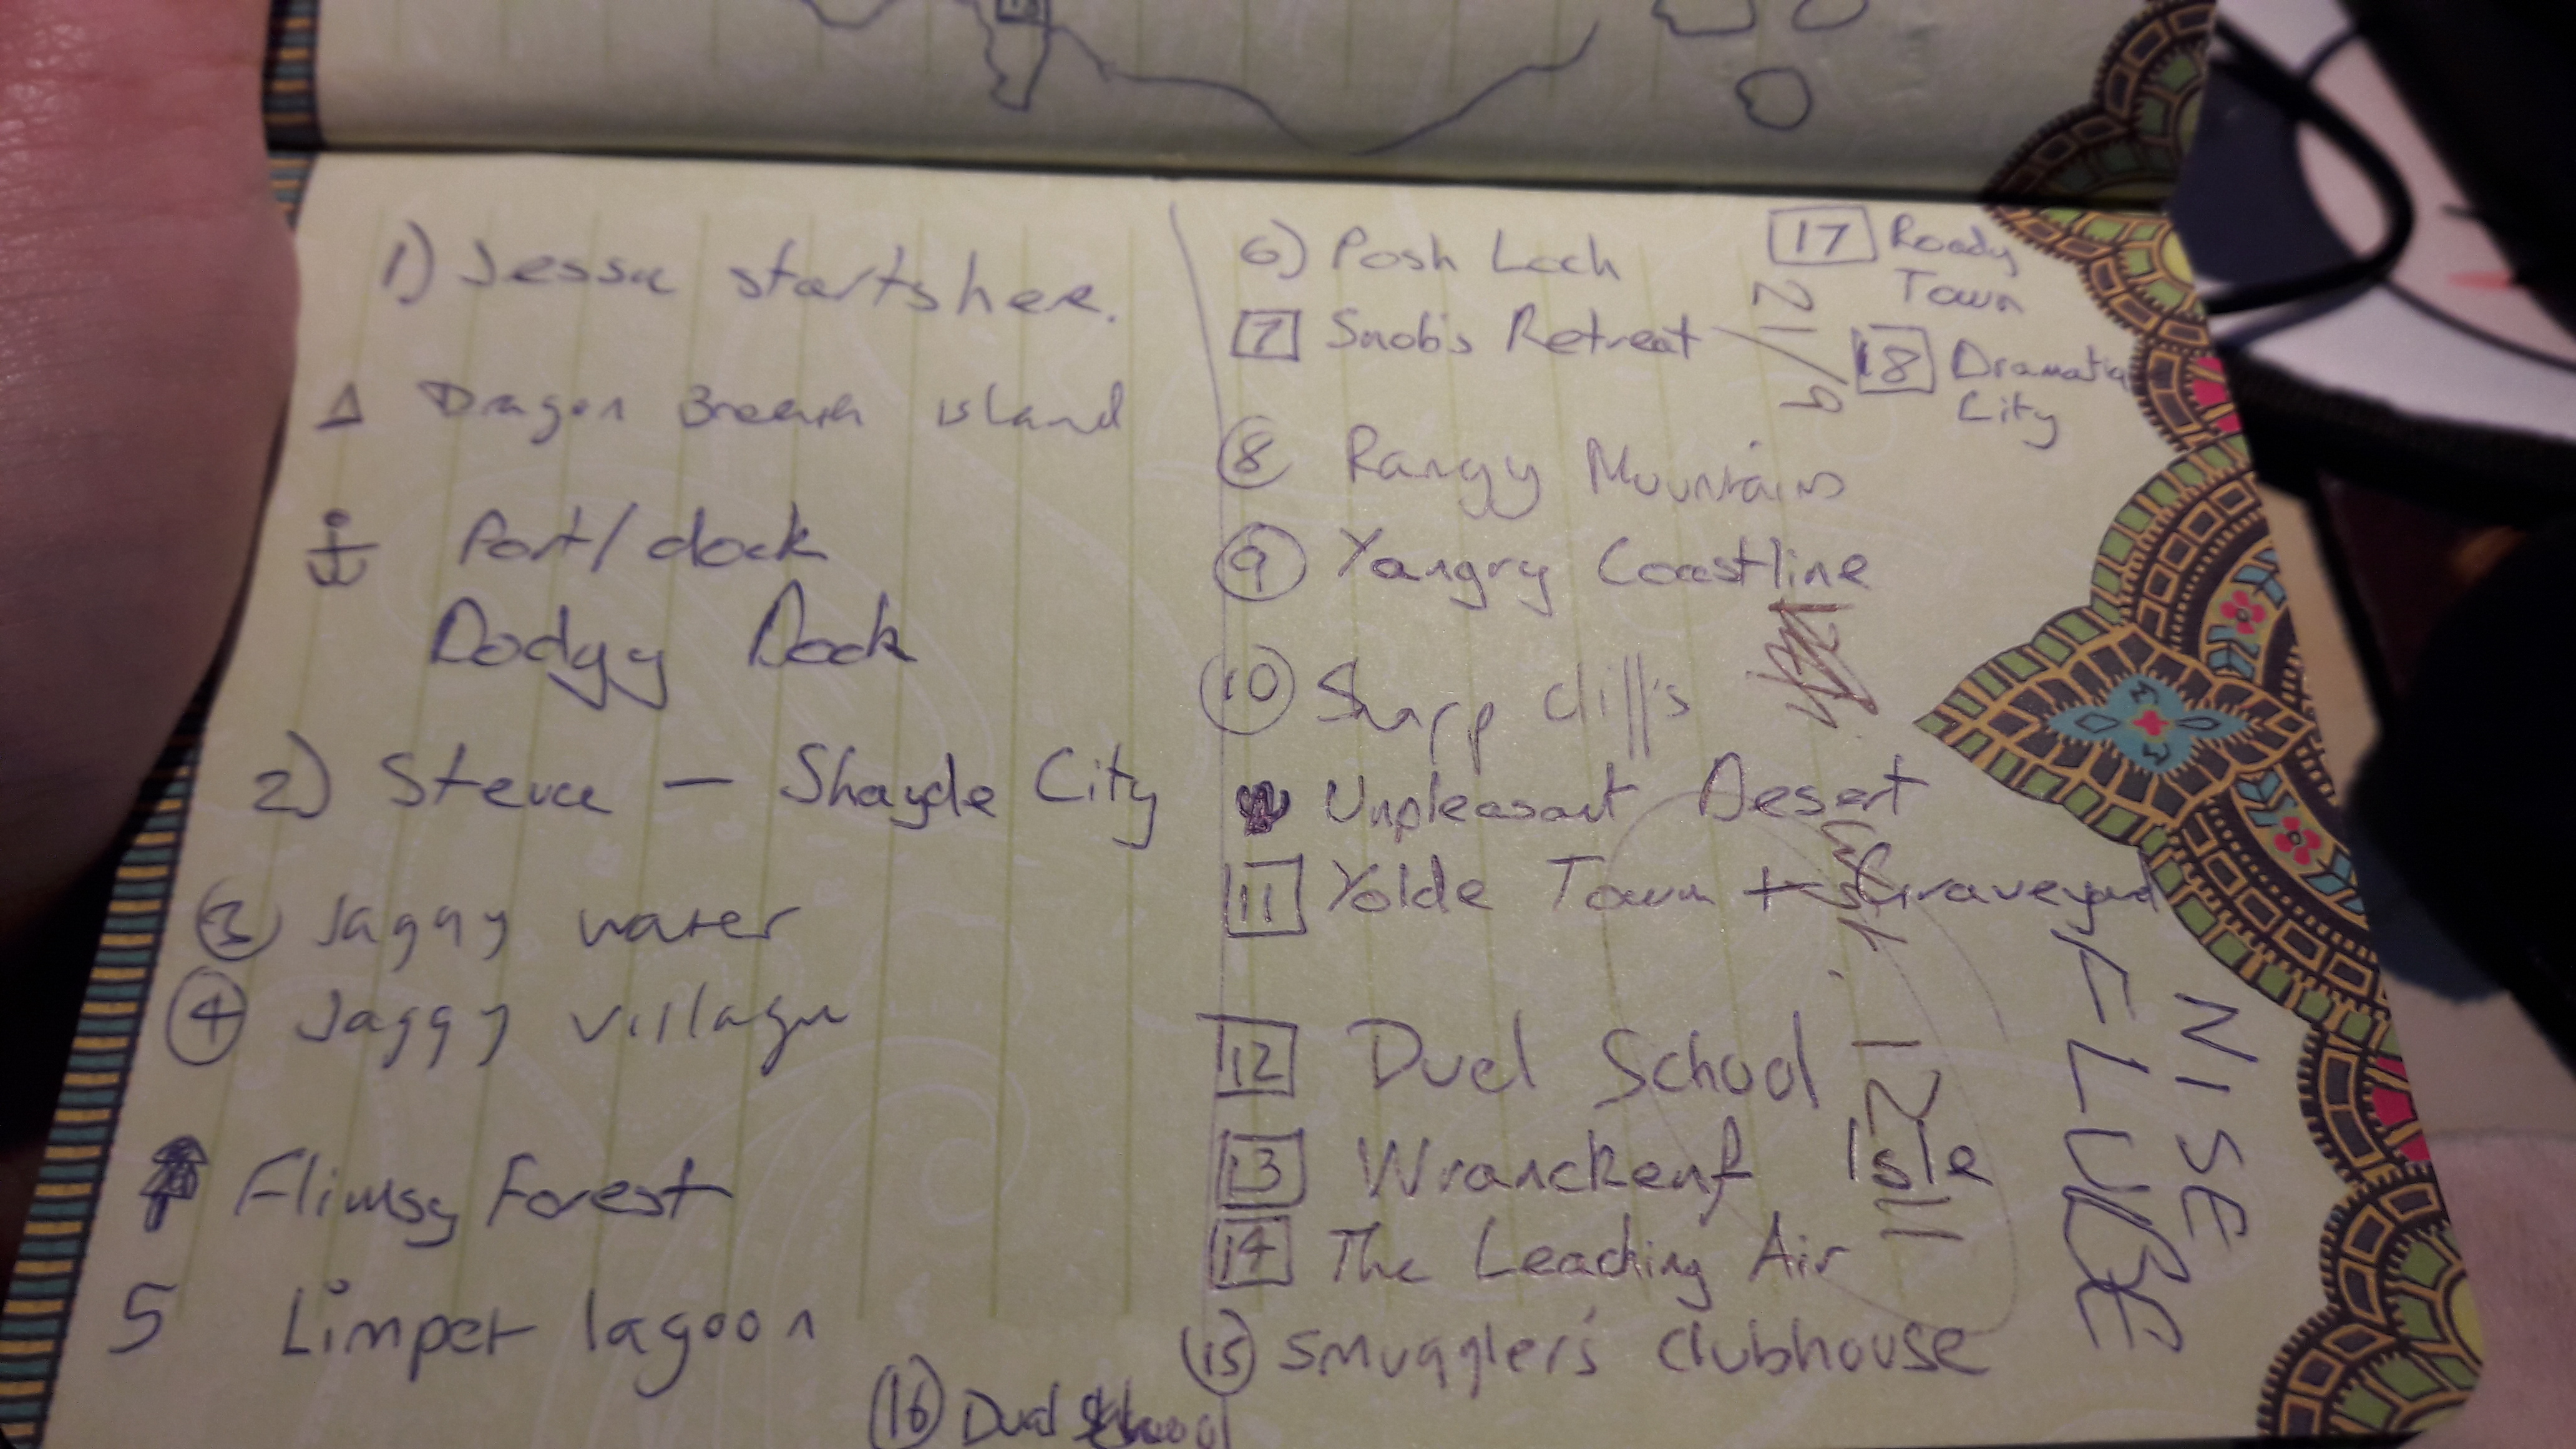 1) Jessa starts here.
Δ Dragon Breath island
Port/dock
Dodgy Dock
2) Steve — Shayde City
3 Jaggy water
4 Jaggy village
Flimsy Forest
5 Limpet lagoon
16 Duel School
6) Posh Loch
7 Snob's Retreat
8 Rangy Mountains
9 Yangry Coastline
10 Sharp cliffs
Unpleasant Desert
11 Yolde Town + Graveyard
12 Duel School
13 Wranckenf Isle
14 The Leaching Air
15 Smuggler's clubhouse
17 Roady
Town
18 Dramatic
City
21/9
12
11
NISE